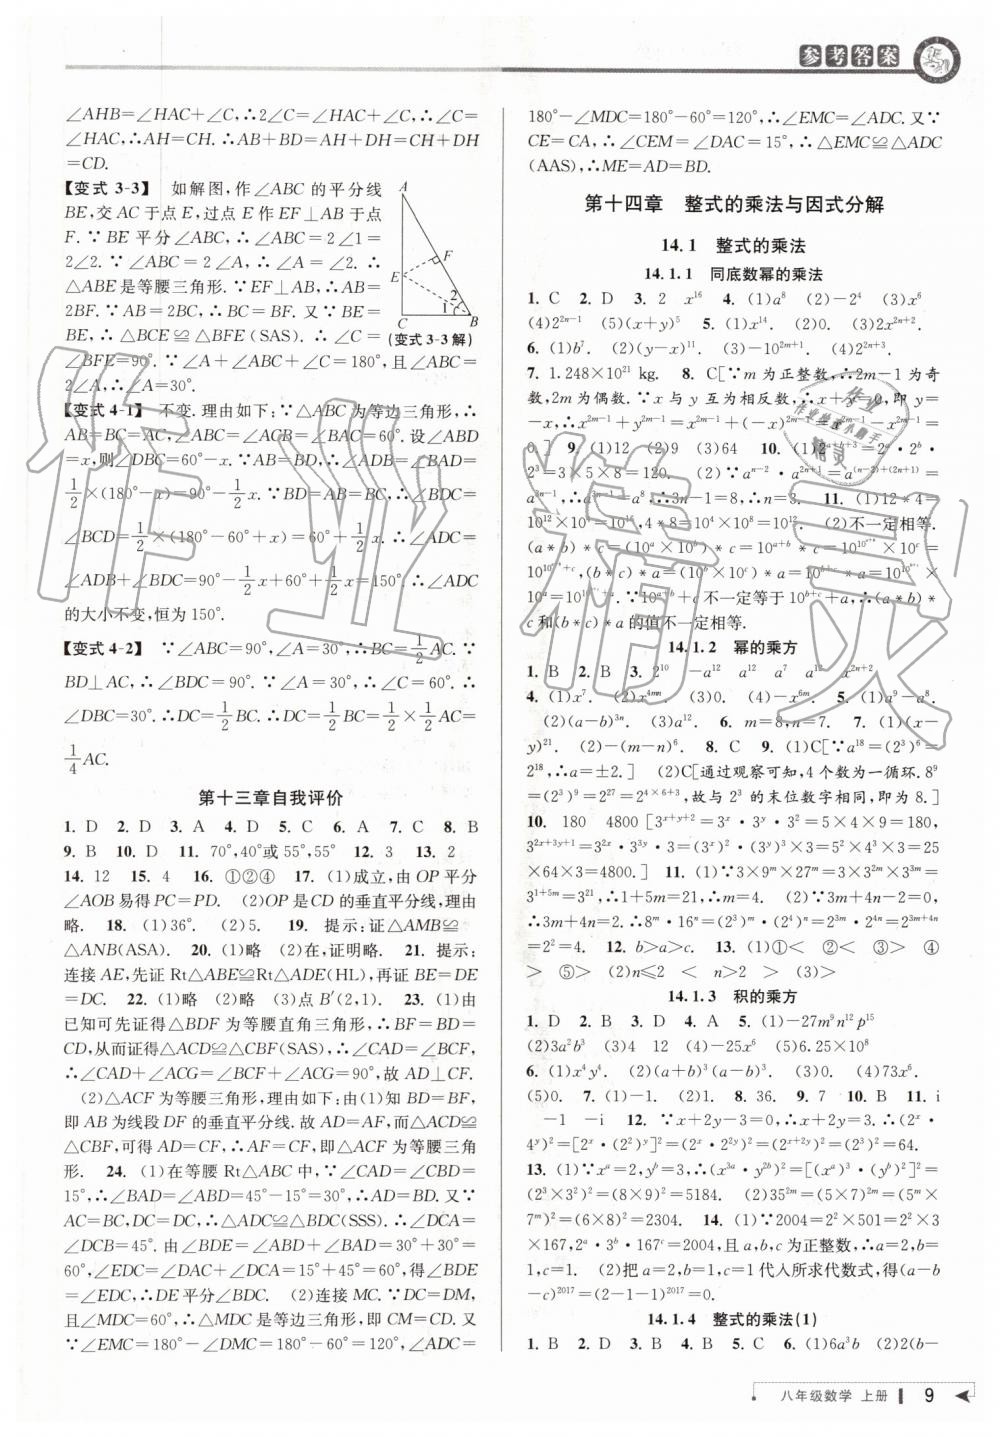 参考答案
∠AHB=∠HAC+∠C,∴2∠C=∠HAC+∠C,∴∠C=
∠HAC,∴AH=CH. ∴AB+BD=AH+DH=CH+DH
=CD.
【变式 3-3】 如解图,作∠ABC 的平分线
BE,交 AC 于点 E,过点 E 作 EF⊥AB 于点
F. ∵BE 平分∠ABC,∴∠ABC=2∠1=
2∠2. ∵∠ABC=2∠A,∴∠A=∠2. ∴
△ABE 是等腰三角形. ∵EF⊥AB,∴AB=
2BF. ∵AB=2BC,∴BC=BF. 又∵BE=
BE,∴△BCE≌△BFE(SAS). ∴∠C=
∠BFE=90°. ∵∠A+∠ABC+∠C=180°,且∠ABC=
2∠A,∴∠A=30°.
A
F
E
2
1
C
B
(变式 3-3 解)
【变式 4-1】 不变. 理由如下:∵△ABC 为等边三角形,∴
AB=BC=AC,∠ABC=∠ACB=∠BAC=60°. 设∠ABD
=x,则∠DBC=60°-x. ∵AB=BD,∴∠ADB=∠BAD=
1/2×(180°-x)=90°-1/2x. ∵BD=AB=BC,∴∠BDC=
∠BCD=1/2×(180°-60°+x)=60°+1/2x. ∴∠ADC=
∠ADB+∠BDC=90°-1/2x+60°+1/2x=150°. ∴∠ADC
的大小不变,恒为 150°.
【变式 4-2】 ∵∠ABC=90°,∠A=30°,∴BC=1/2AC. ∵
BD⊥AC,∴∠BDC=90°. ∵∠A=30°,∴∠C=60°. ∴
∠DBC=30°. ∴DC=1/2BC. ∴DC=1/2BC=1/2×1/2AC=
1/4AC.
第十三章自我评价
1. D 2. D 3. A 4. D 5. C 6. A 7. C 8. B
9. B 10. D 11. 70°,40°或 55°,55° 12. 3 13. 2
14. 12 15. 4 16. ①②④ 17. (1)成立,由 OP 平分
∠AOB 易得 PC=PD. (2)OP 是 CD 的垂直平分线,理由
略. 18. (1)36°. (2)5. 19. 提示:证△AMB≌
△ANB(ASA). 20. (1)略 (2)在,证明略. 21. 提示:
连接 AE,先证 Rt△ABE≌Rt△ADE(HL),再证 BE=DE
=DC. 22. (1)略 (2)略 (3)点 B′(2,1). 23. (1)由
已知可先证得△BDF 为等腰直角三角形,∴BF=BD=
CD,从而证得△ACD≌△CBF(SAS),∴∠CAD=∠BCF,
∴∠CAD+∠ACG=∠BCF+∠ACG=90°,故 AD⊥CF.
(2)△ACF 为等腰三角形,理由如下:由(1)知 BD=BF,
即 AB 为线段 DF 的垂直平分线. 故 AD=AF,而△ACD≌
△CBF,可得 AD=CF,∴AF=CF,即△ACF 为等腰三角
形. 24. (1)在等腰 Rt△ABC 中,∵∠CAD=∠CBD=
15°,∴∠BAD=∠ABD=45°-15°=30°,∴AD=BD. 又∵
AC=BC,DC=DC,∴△ADC≌△BDC(SSS). ∴∠DCA=
∠DCB=45°. 由∠BDE=∠ABD+∠BAD=30°+30°=
60°,∠EDC=∠DAC+∠DCA=15°+45°=60°,得∠BDE
=∠EDC,∴DE 平分∠BDC. (2)连接 MC. ∵DC=DM,
且∠MDC=60°,∴△MDC 是等边三角形,即 CM=CD. 又
∵∠EMC=180°-∠DMC=180°-60°=120°,∠ADC=
180°-∠MDC=180°-60°=120°,∴∠EMC=∠ADC. 又∵
CE=CA,∴∠CEM=∠DAC=15°,∴△EMC≌△ADC
(AAS),∴ME=AD=BD.
第十四章 整式的乘法与因式分解
14.1 整式的乘法
14.1.1 同底数幂的乘法
1. C 2. D 3. 2 x¹⁶ 4. (1)a⁸ (2)-2⁴ (3)x⁶
(4)2²ⁿ⁻¹ (5)(x+y)⁵ 5. (1)x¹⁴. (2)0. (3)2x²ⁿ⁺².
6. (1)b⁷. (2)(y-x)¹¹. (3)-10²ᵐ⁺¹. (4)2²ⁿ⁺³.
7. 1.248×10²¹ kg. 8. C[∵m 为正整数,∴2m-1 为奇
数,2m 为偶数. ∵x 与 y 互为相反数,∴x+y=0,即 y=
-x,∴x²ᵐ⁻¹+y²ᵐ⁻¹=x²ᵐ⁻¹+(-x)²ᵐ⁻¹=x²ᵐ⁻¹-x²ᵐ⁻¹=
0.] 9. (1)12 (2)9 (3)64 10. (1)2ᵃ⁺ᵇ⁺³=2ᵃ·2ᵇ·
2³=3×5×8=120. (2)∵aⁿ⁻²·a²ⁿ⁺¹=a⁽ⁿ⁻²⁾⁺⁽²ⁿ⁺¹⁾=
a³ⁿ⁻¹,∴a³ⁿ⁻¹=a⁸,∴3n-1=8,∴n=3. 11. (1)12*4=
10¹²×10⁴=10¹⁶,4*8=10⁴×10⁸=10¹². (2)不一定相等.
(a*b)*c=(10ᵃ×10ᵇ)*c=10ᵃ⁺ᵇ*c=10^(10^(a+b))×10ᶜ=
10^(10^(a+b)+c),(b*c)*a=(10ᵇ×10ᶜ)*a=10ᵇ⁺ᶜ*a=10^(10^(b+c))×
10ᵃ=10^(10^(b+c)+a). ∵10ᵃ⁺ᵇ+c 不一定等于 10ᵇ⁺ᶜ+a,∴(a*b)*
c 和(b*c)*a 的值不一定相等.
14.1.2 幂的乘方
1. B 2. B 3. 2¹⁰ -a¹² a¹² a⁷ a¹² x²ⁿ⁺²
4. (1)x⁷. (2)x⁴ᵐⁿ. (3)0. (4)-x⁶ᵐ. 5. (1)a⁹-a⁸.
(2)(a-b)³ⁿ. (3)a¹¹. 6. m=8,n=7. 7. (1)(x-
y)²¹. (2)-(m-n)⁶. 8. C 9. (1)C[∵a¹⁸=(2³)⁶=
2¹⁸,∴a=±2.] (2)C[通过观察可知,4 个数为一循环. 8⁹
=(2³)⁹=2²⁷=2⁴ˣ⁶⁺³,故与 2³ 的末位数字相同,即为 8.]
10. 180 4800[3ˣ⁺ʸ⁺²=3ˣ·3ʸ·3²=5×4×9=180,
3²ˣ⁺³ʸ⁺¹=3²ˣ·3³ʸ·3=(3ˣ)²·(3ʸ)³×3=5²×4³×3=25
×64×3=4800.] 11. (1)∵3×9ᵐ×27ᵐ=3×3²ᵐ×3³ᵐ=
3¹⁺⁵ᵐ=3²¹,∴1+5m=21. ∴m=4. (2)∵3m+4n-2=0,
∴3m+4n=2. ∴8ᵐ·16ⁿ=(2³)ᵐ·(2⁴)ⁿ=2³ᵐ·2⁴ⁿ=2³ᵐ⁺⁴ⁿ
=2²=4. 12. b>a>c. 13. (1)①< ②< ③> ④
> ⑤> (2)n≤2 < n>2 > (3)>
14.1.3 积的乘方
1. D 2. B 3. D 4. A 5. (1)-27m⁹n¹²p¹⁵
(2)3a²b³ (3)4 12 (4)-25x⁶ (5)6.25×10⁸
6. (1)x⁴y⁴. (2)(a+b)³(a-b)³. (3)2ⁿ. (4)73x⁶.
(5)0. 7. (1)-1. (2)1. 8. 36. 9. 7 10. B 11. i
-1 -i 12. ∵x+2y-3=0,∴x+2y=3. ∴(2ˣ·
4ʸ)²=[2ˣ·(2²)ʸ]²=(2ˣ·2²ʸ)²=(2ˣ⁺²ʸ)²=(2³)²=64.
13. (1)∵xᵃ=2,yᵇ=3,∴(x³ᵃ·y²ᵇ)²=[(xᵃ)³·(yᵇ)²]²=
(2³×3²)²=(8×9)²=5184. (2)35²ᵐ=(5×7)²ᵐ=(5ᵐ×
7ᵐ)²=(6×8)²=2304. 14. (1)∵2004=2²×501=2²×3
×167,2ᵃ·3ᵇ·167ᶜ=2004,且 a,b,c 为正整数,∴a=2,b=
1,c=1. (2)把 a=2,b=1,c=1 代入所求代数式,得(a-b
-c)²⁰¹⁷=(2-1-1)²⁰¹⁷=0.
14.1.4 整式的乘法(1)
1. B 2. D 3. B 4. B 5. C 6. (1)6a³b (2)2(b-
八年级数学 上册 9
作业精灵